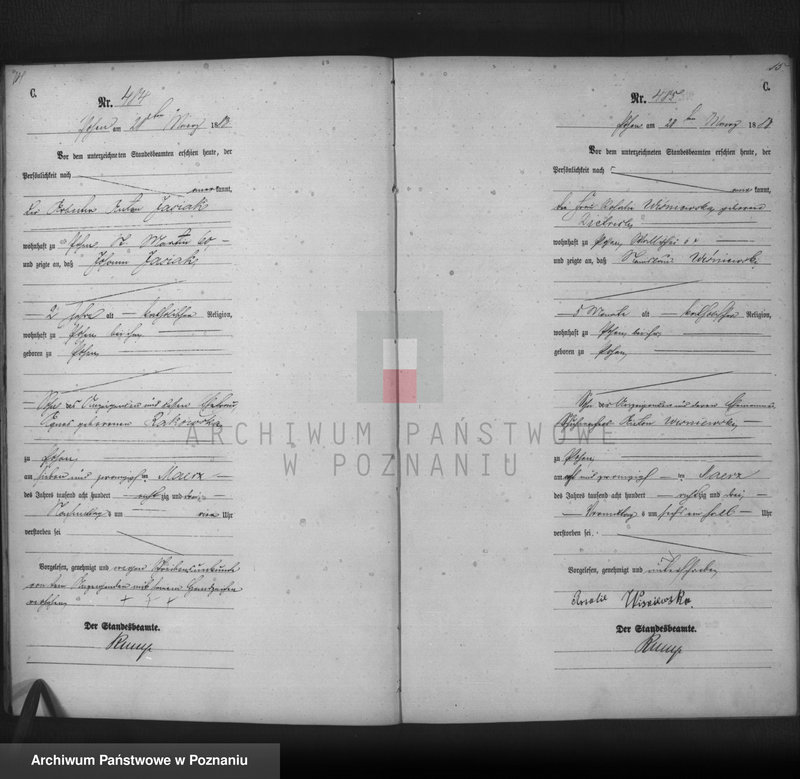 C.
Nr. 484
Posen am 28ten März 1883
Vor dem unterzeichneten Standesbeamten erschien heute, der
Persönlichkeit nach
kannt,
der Arbeiter Anton Jasiak
wohnhaft zu Posen St. Martin 60
und zeigte an, daß Johann Jasiak
2 Jahre alt katholischer Religion,
wohnhaft zu Posen bei ihm
geboren zu Posen,
Sohn des Anzeigenden und dessen Ehefrau
Agnes geborenen Rakowska
zu Posen
am sieben und zwanzigsten Maerz
des Jahres tausend acht hundert achtzig und drei,
Nachmittags um vier Uhr
verstorben sei
Vorgelesen, genehmigt und wegen Schreibensunkunde
von dem Anzeigenden mit seinem Handzeichen
versehen + + +
Der Standesbeamte.
Rump
15
C.
Nr. 485
Posen am 28ten März 1883
Vor dem unterzeichneten Standesbeamten erschien heute, der
Persönlichkeit nach
kannt,
die Frau Wisniewska geborene
wohnhaft zu Posen,
und zeigte an, daß Wisniewski
5 Monate alt katholischer Religion,
wohnhaft zu Posen, bei ihr
geboren zu Posen,
Sohn der Anzeigenden und deren Ehemannes
Anton Wisniewski
zu Posen
am acht und zwanzigsten Maerz
des Jahres tausend acht hundert achtzig und drei,
Vormittags um sechs ein halb Uhr
verstorben sei
Vorgelesen, genehmigt und unterschrieben
Amalie Wisniewska
Der Standesbeamte.
Rump
ARCHIWUM PAŃSTWOWE
W POZNANIU
Archiwum Państwowe w Poznaniu